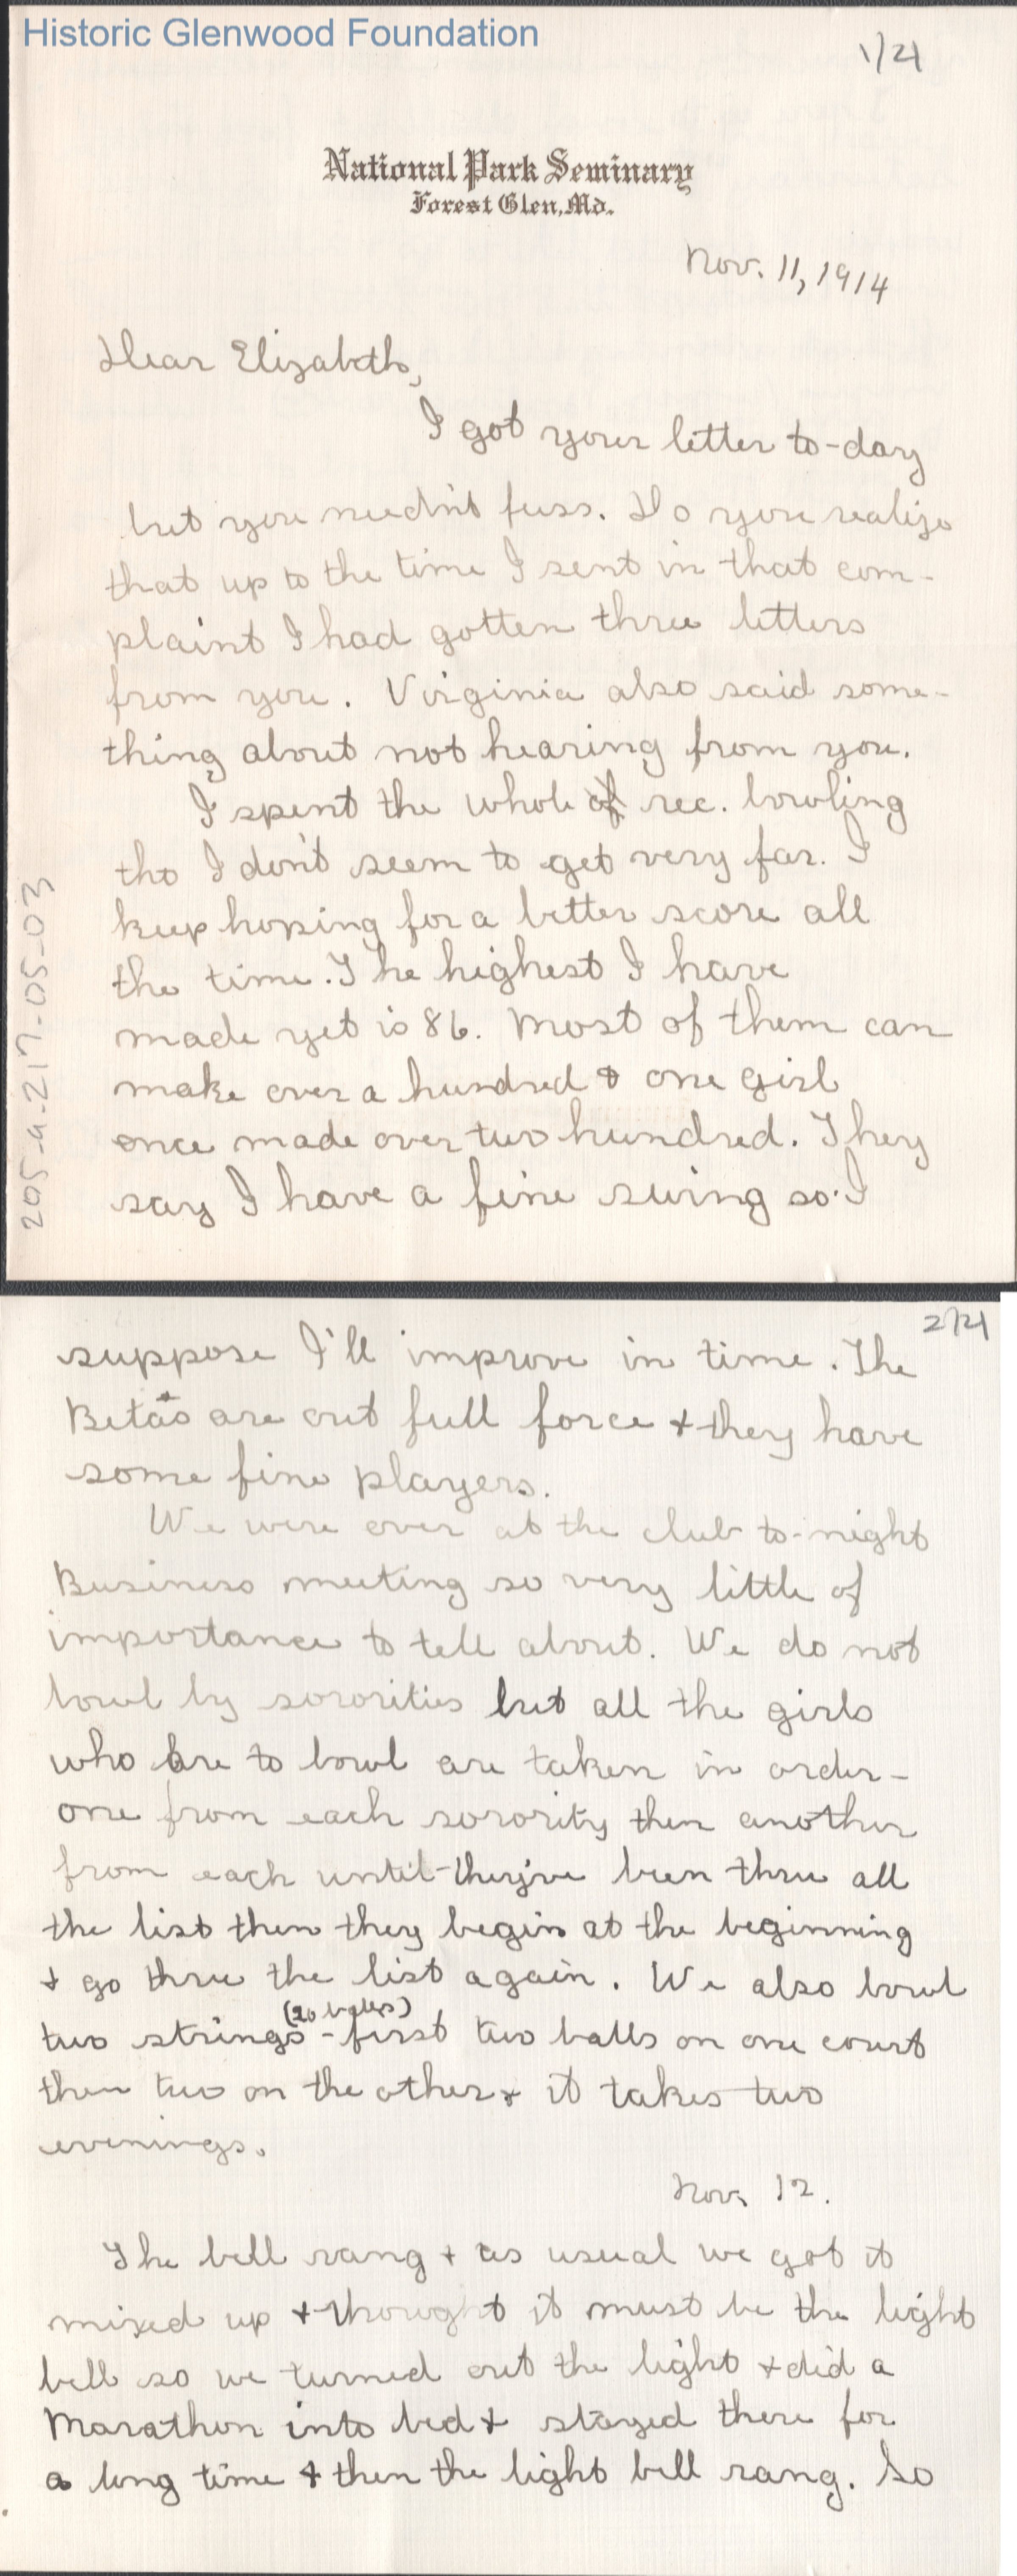 Historic Glenwood Foundation
1/21
National Park Seminary
Forest Glen, Md.
Nov. 11, 1914
Dear Elizabeth,
I got your letter to-day
but you needn't fuss. Do you realize
that up to the time I sent in that com-
plaint I had gotten three letters
from you. Virginia also said some-
thing about not hearing from you.
I spent the whole of rec. bowling
tho I don't seem to get very far. I
keep hoping for a better score all
the time. The highest I have
made yet is 86. Most of them can
make over a hundred & one girl
once made over two hundred. They
say I have a fine swing so I
205-a-217-05-03
2/21
suppose I'll improve in time. The
Betas are out full force & they have
some fine players.
We were over at the club to-night
Business meeting so very little of
importance to tell about. We do not
bowl by sororities but all the girls
who are to bowl are taken in order-
one from each sorority then another
from each until they've been thru all
the list then they begin at the beginning
& go thru the list again. We also bowl
(20 balls)
two strings - first two balls on one court
then two on the other & it takes two
evenings.
Nov. 12.
The bell rang & as usual we got it
mixed up & thought it must be the light
bell so we turned out the light & did a
Marathon into bed & stayed there for
a long time & then the light bell rang. So